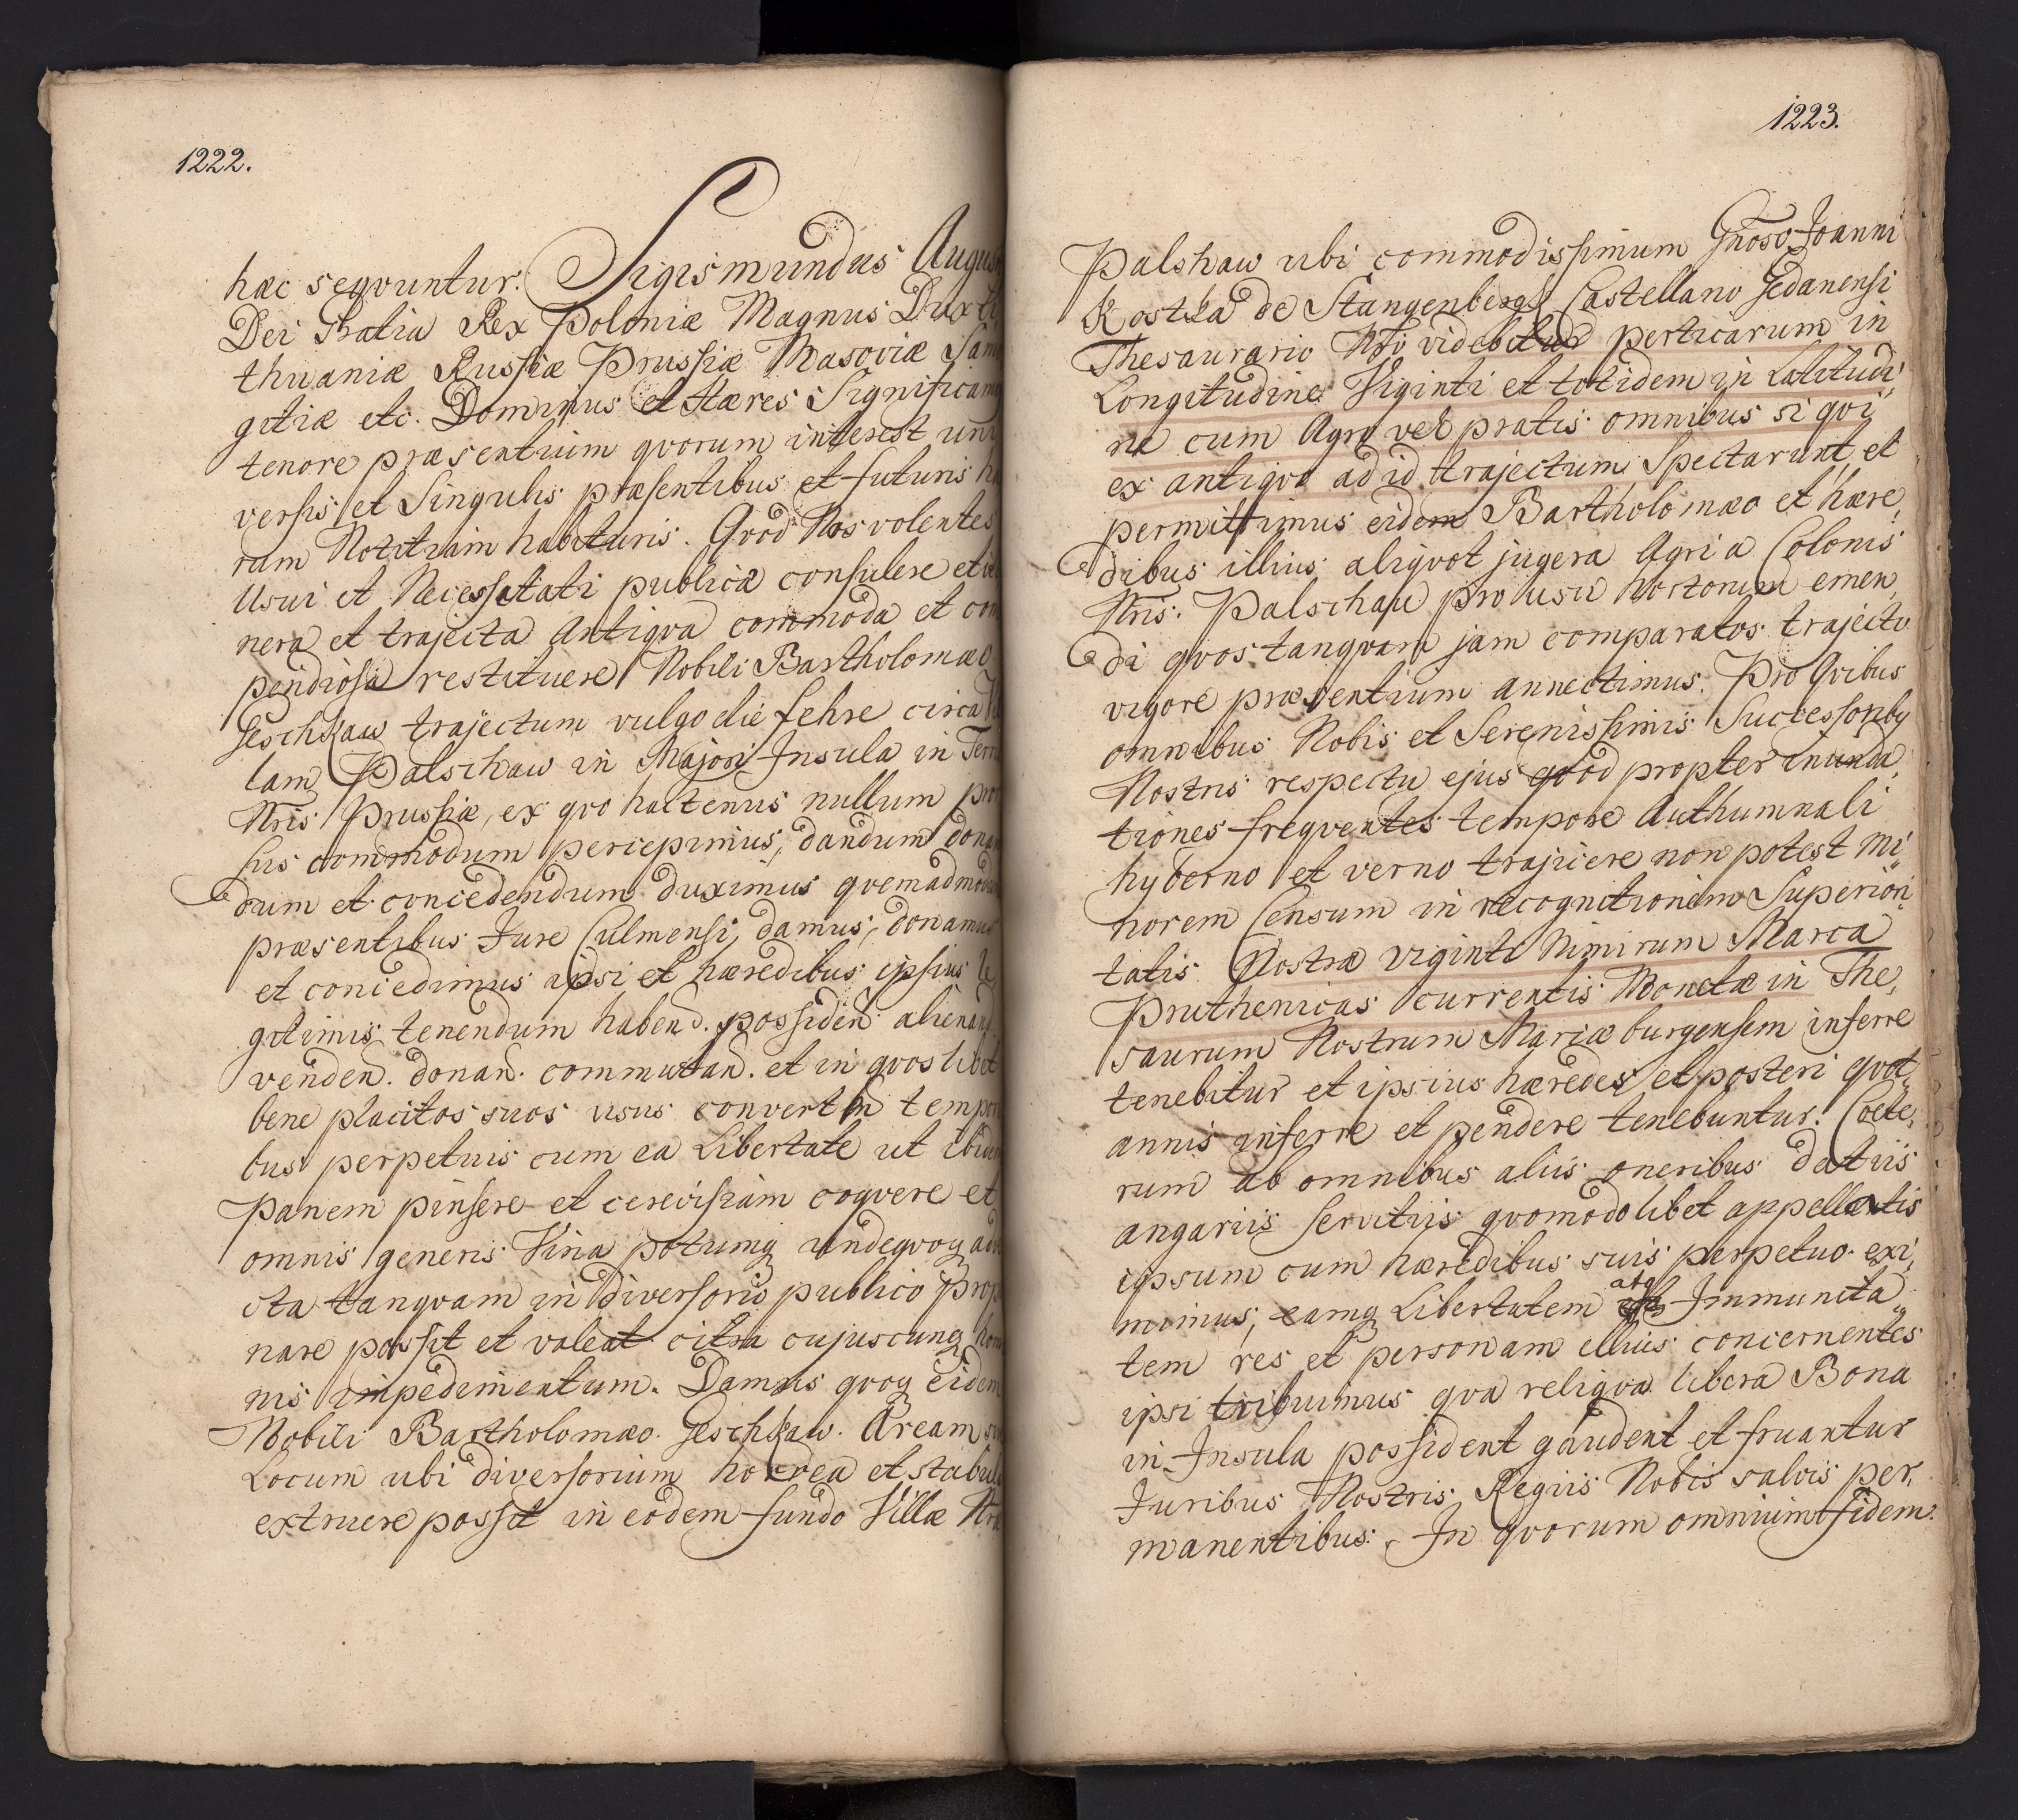 1222.
hæc seqvuntur. Sigismundus August
Dei Gratia Rex Poloniæ Magnus Dux Li
thuaniæ Russiæ Prussiæ Masoviæ Sam
gitiæ etc. Dominus et Hæres Significam
tenore præsentium qvorum interest uni
versis et Singulis præsentibus et futuris ha
rum Notitiam habituris. Qvod Nos volentes
Usui et Necessitati publicæ consulere et
nera et trajecta antiqva commoda et com
pendiosa restituere Nobili Bartholomæo
Geschkaw trajectum vulgo die fehre circa Vil
lam Palschaw in Majori Insula in Terris
Nris Prussiæ, ex qvo hactenus nullum pror
sus commodum percepimus, dandum donan
dum et concedendum duximus qvemadmodum
præsentibus Jure Culmensi, damus, donamus
et concedimus ipsi et hæredibus ipsius le
gitimis tenendum habend. possiden alienand.
venden. donan. commutan. et in qvos libet
bene placitos suos usus converten tempori
bus perpetuis cum ea Libertate ut ibidem
Panem pinsere et cerevisiam coqvere et
omnis generis Vina potumq undeqvoq adve
cta tanqvam in diversorio publico propi
nare possit et valeat citra cujuscunq homi
nis impedimentum. Damus qvoq eidem
Nobili Bartholomæo Geschkaw. Aream
Locum ubi diversorium horrea et stabula
extruere possit in eodem fundo Villæ Nræ
1223.
Palshaw ubi commodissimum Gnoso Joanni
Kostka de Stangenberg Castellano Gedanensi
Thesaurario Nro videbitur perticarum in
Longitudine Viginti et totidem in Latitudi,
ne cum Agro vel pratis omnibus si qvi
ex antiqvo ad id trajectum Spectarunt, et
permittimus eidem Bartholomæo et hære,
dibus illius aliqvot jugera Agri a Colonis
Nris Palschau pro usu hortorum emen,
di qvos tanqvam jam comparatos trajecto
vigore præsentium annectimus. Pro Qvibus
omnibus Nobis et Serenissimis Successoriby
Nostris respectu ejus qvod propter inunda,
tiones freqventes tempore Authumnali
hyberno et verno trajicere non potest Mi,
norem Censum in recognitionem Superiori,
tatis Nostræ viginti Nimirum Marca
Pruthenicas currentis Monetæ in The,
saurum Nostrum Mariæburgensem inferre
tenebitur et ipsius hæredes et posteri qvot
annis inferre et pendere tenebuntur. Cœte,
rum ab omnibus aliis oneribus datiis
angariis servitijs qvomodolibet appellatis
ipsum cum hæredibus suis perpetuo exi,
mimus, eamq Libertatem atq Immunita,
tem res et personam illius concernentes
ipsi tribuimus qva reliqva libera Bona
in Insula possident gaudent et fruantur
Juribus Nostris Regiis Nobis salvis per,
manentibus. In qvorum omnium fidem.